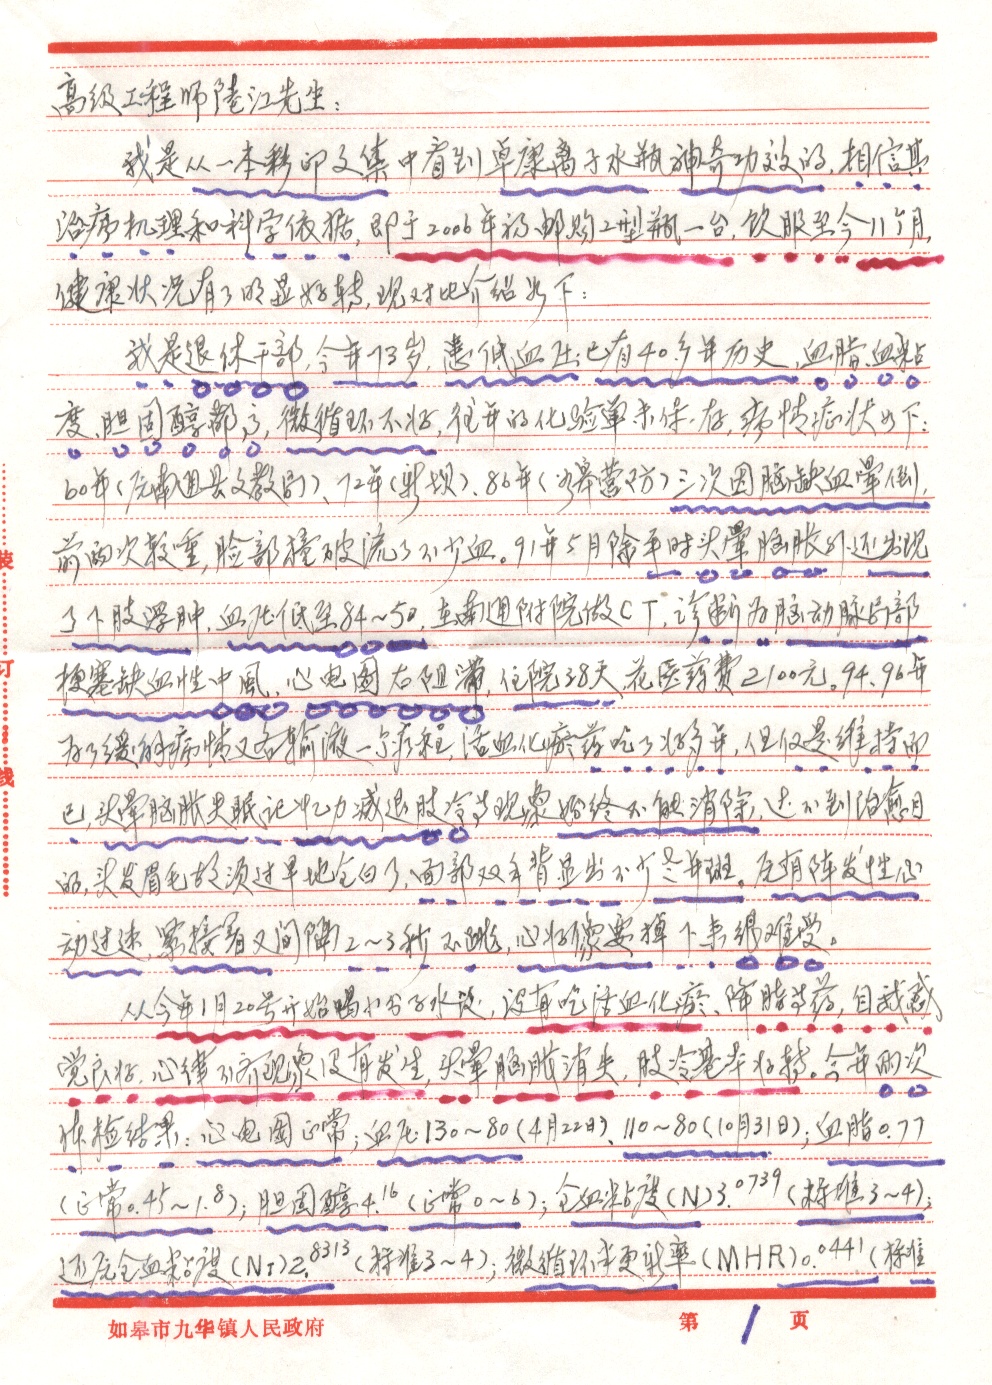 高级工程师陆江先生：
我是从一本彩印文集中看到卓康离子水瓶神奇功效的，相信其
治病机理和科学依据，即于2006年初邮购2型瓶一台，饮服至今11个月，
健康状况有了明显好转，现对比介绍如下：
我是退休干部，今年73岁，患低血压已有40多年历史，血脂血粘
度、胆固醇都高，微循环不好，往年的化验单未保存，病情症状如下：
60年（在南通县文教局）、72年（新坝）、86年（如皋营防）三次因脑缺血晕倒，
前两次较重，脸部撞破流了不少血。91年5月除平时头晕脑胀外还出现
了下肢浮肿，血压低至84～50，在南通附院做CT，诊断为脑动脉局部
梗塞缺血性中风，心电图右阻滞，住院38天，花医药费2100元。94、96年
为了缓解病情又各输液一个疗程，活血化瘀药吃了好多年，但仅是维持而
已，头晕脑胀失眠记忆力减退肢冷等现象始终不能消除，达不到治愈目
的，头发眉毛胡须过早地全白了，面部双手背显出不少老年斑。还有阵发性心
动过速，紧接着又间隔2～3秒不跳，心好像要掉下来很难受。
从今年1月20号开始喝小分子水后，没有吃活血化瘀、降脂等药，自我感
觉良好，心律不齐现象没有发生，头晕脑胀消失，肢冷基本好转。今年两次
体检结果：心电图正常；血压130～80（4月22日）、110～80（10月31日）；血脂0.77
（正常0.45～1.8）；胆固醇4.16（正常0～6）；全血粘度（N）3.0739（标准3～4）；
还原全血粘度（NT）2.8313（标准3～4）；微循环半更新率（MHR）0.0441（标准
装
订
线
如皋市九华镇人民政府
第 1 页